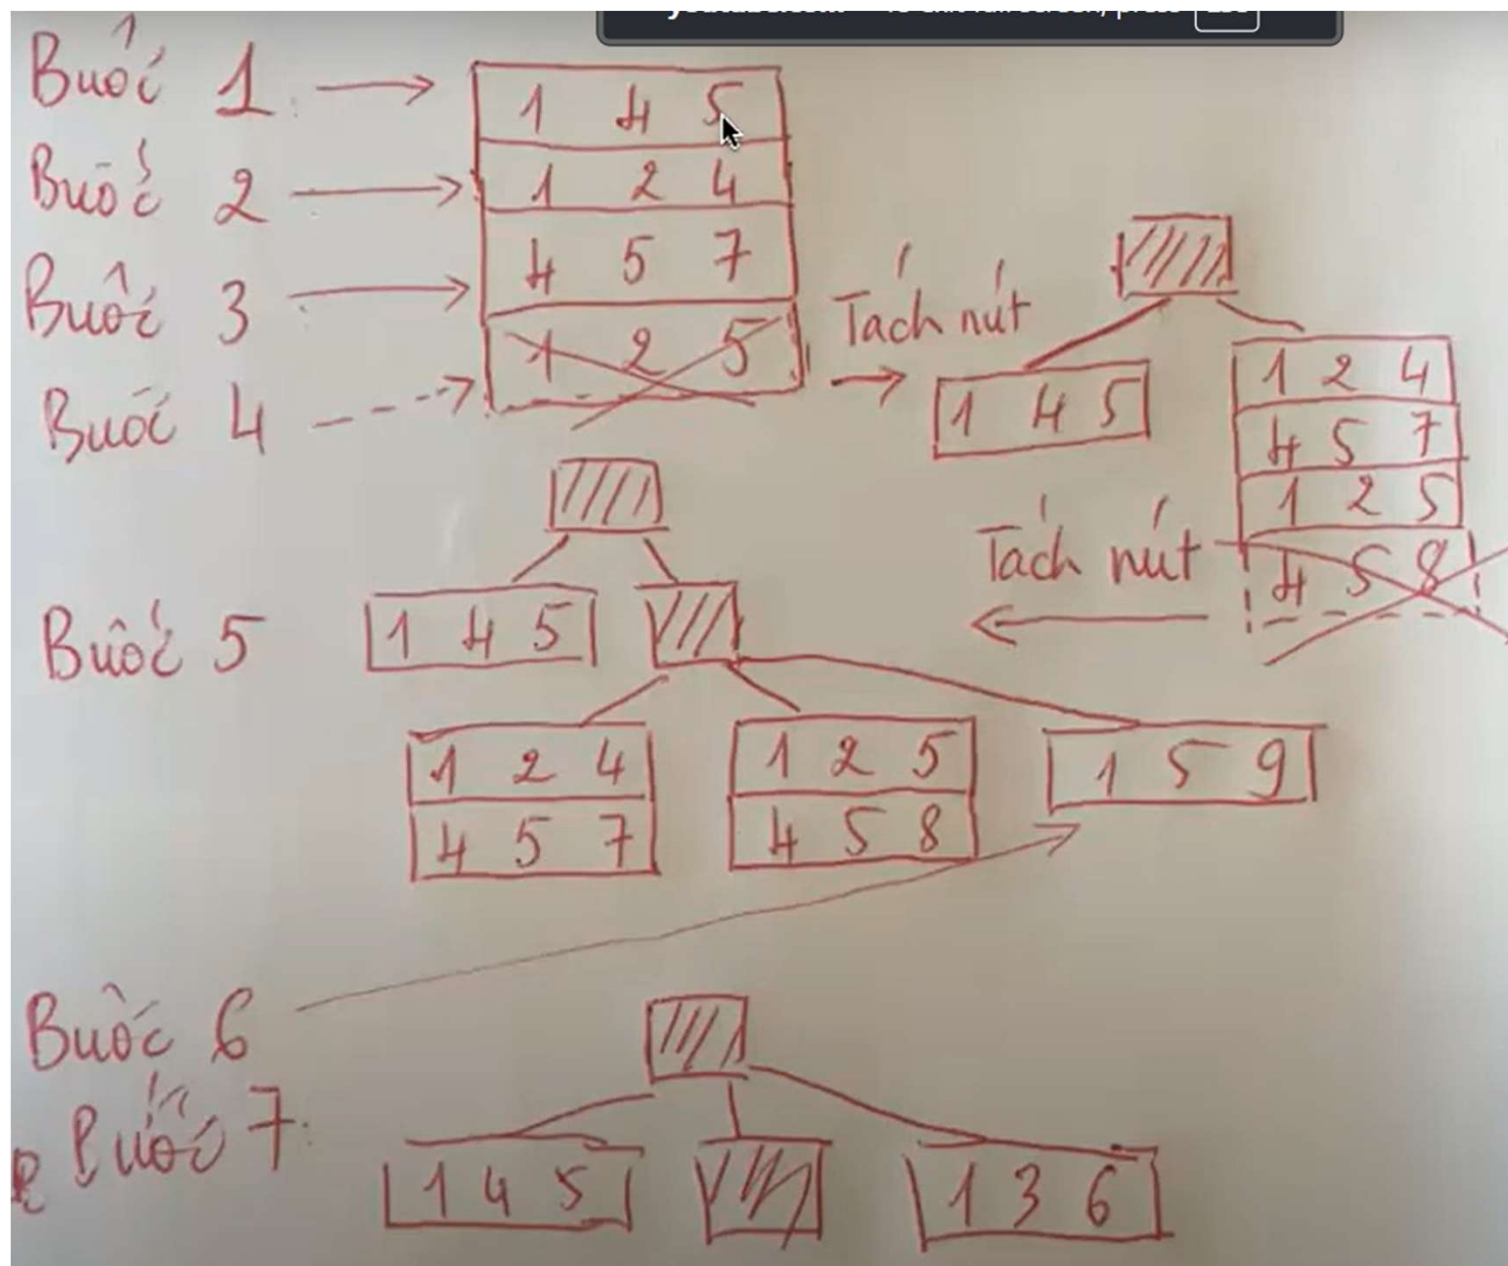 Bước 1
1 4 5
Bước 2
1 2 4
Bước 3
4 5 7
Bước 4
1 2 5
Tách nút
1 4 5
1 2 4
4 5 7
1 2 5
4 5 8
Tách nút
Bước 5
1 4 5
1 2 4
4 5 7
1 2 5
4 5 8
1 5 9
Bước 6
Bước 7
1 4 5
1 3 6